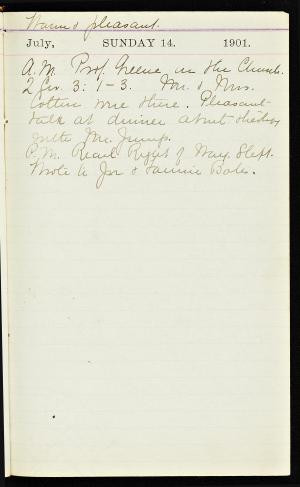 Warm & pleasant.
July, SUNDAY 14. 1901.
A.M. Prof. Greene in the Church.
2 3:1-3. Mr. & Mrs.
were there. Pleasant
talk at dinner about theology
with Mr. Jump.
P.M. Read Right of Way. Slept.
Wrote to & Fannie Bale.